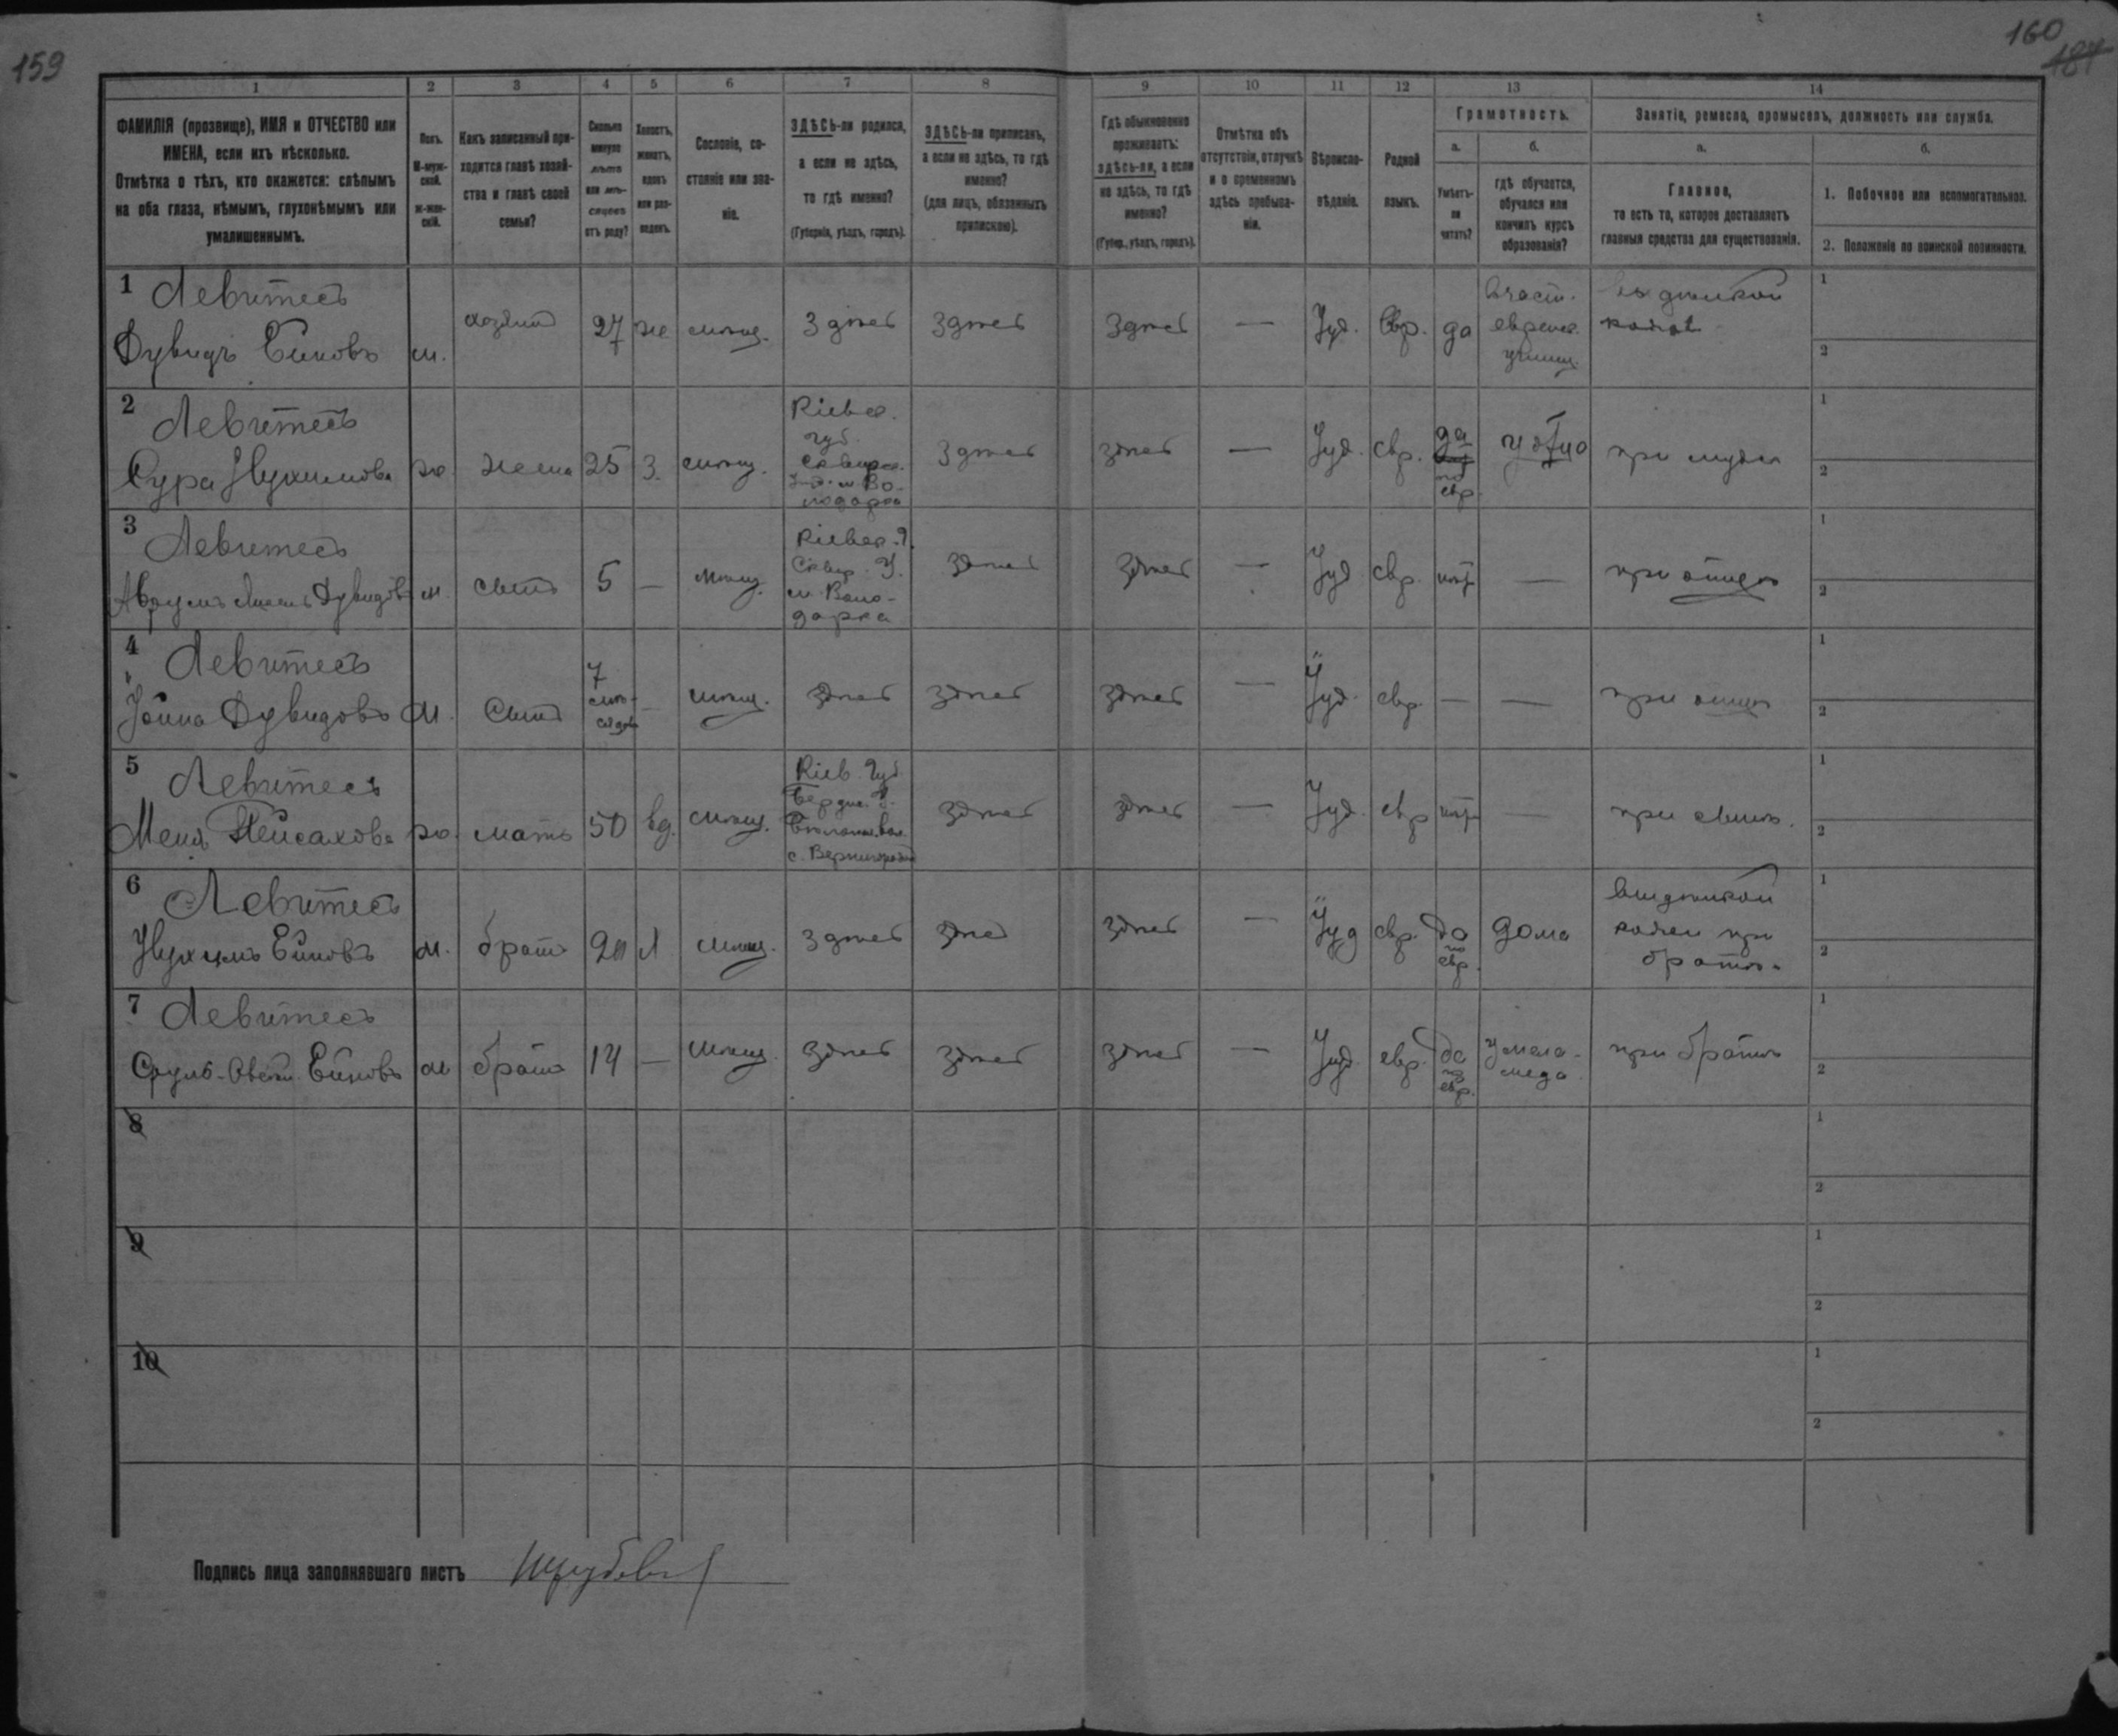 159
160
187
1 2 3 4 5 6 7 8 9 10 11 12 13 14
ФАМИЛІЯ (прозвище), ИМЯ и ОТЧЕСТВО или
ИМЕНА, если ихъ нѣсколько.
Отмѣтка о тѣхъ, кто окажется: слѣпымъ
на оба глаза, нѣмымъ, глухонѣмымъ или
умалишеннымъ.
Полъ.
М-муж-
ской.
ж-жен-
скій.
Какъ записанный при-
ходится главѣ хозяй-
ства и главѣ своей
семьи?
Сколько
минуло
лѣтъ
или мѣ-
сяцевъ
отъ роду?
Холостъ,
женатъ,
вдовъ
или раз-
веденъ.
Сословіе, со-
стояніе или зва-
ніе.
ЗДѢСЬ-ли родился,
а если не здѣсь,
то гдѣ именно?
(Губернія, уѣздъ, городъ).
ЗДѢСЬ-ли приписанъ,
а если не здѣсь, то гдѣ
именно?
(для лицъ, обязанныхъ
припискою).
Гдѣ обыкновенно
проживаетъ:
здѣсь-ли, а если
не здѣсь, то гдѣ
именно?
(Губер., уѣздъ, городъ).
Отмѣтка объ
отсутствіи, отлучкѣ
и о временномъ
здѣсь пребыва-
ніи.
Вѣроиспо-
вѣданіе.
Родной
языкъ.
Грамотность.
а.
Умѣетъ-
ли
читать?
б.
гдѣ обучается,
обучался или
кончилъ курсъ
образованія?
Занятіе, ремесло, промыселъ, должность или служба.
а.
Главное,
то есть то, которое доставляетъ
главныя средства для существованія.
б.
1. Побочное или вспомогательное.
2. Положеніе по воинской повинности.
1 Левитесъ
Дувидъ Еиновъ м. хозяинъ 27 же мѣщ. здѣсь здѣсь здѣсь — Іуд. Евр. да
2 Левитесъ
Сура Нухимова ж. жена 25 з. мѣщ.
Кіевск.
губ.
Сквирск.
м. Во-
лодарка
здѣсь здѣсь — Іуд. евр. да
по
евр.
при мужѣ
3 Левитесъ
Дувидовъ м. сынъ 5 — мѣщ.
Кіевск. г.
Сквир. у.
м. Воло-
дарка
здѣсь здѣсь — Іуд. евр. нѣт — при отцѣ
4 Левитесъ
Іойна Дувидовъ м. сынъ 7
мѣ-
сяцевъ
— мѣщ. здѣсь здѣсь здѣсь — Іуд. евр. — — при отцѣ
5 Левитесъ
Меня Пейсахова ж. мать 50 вд. мѣщ.
Кіев. Губ.
Бердич. у.
с. Вернигородокъ
здѣсь здѣсь — Іуд. евр нѣт — при сынѣ.
6 Левитесъ
Нухимъ Еиновъ м. братъ мѣщ. здѣсь здѣсь здѣсь — Іуд евр. да
по
евр.
дома
при
братѣ.
7 Левитесъ
Сруль- Еиновъ м братъ 14 — мѣщ. здѣсь здѣсь здѣсь — Іуд. евр. да
по
евр.
у мела-
меда
при братѣ
8
9
10
Подпись лица заполнявшаго листъ